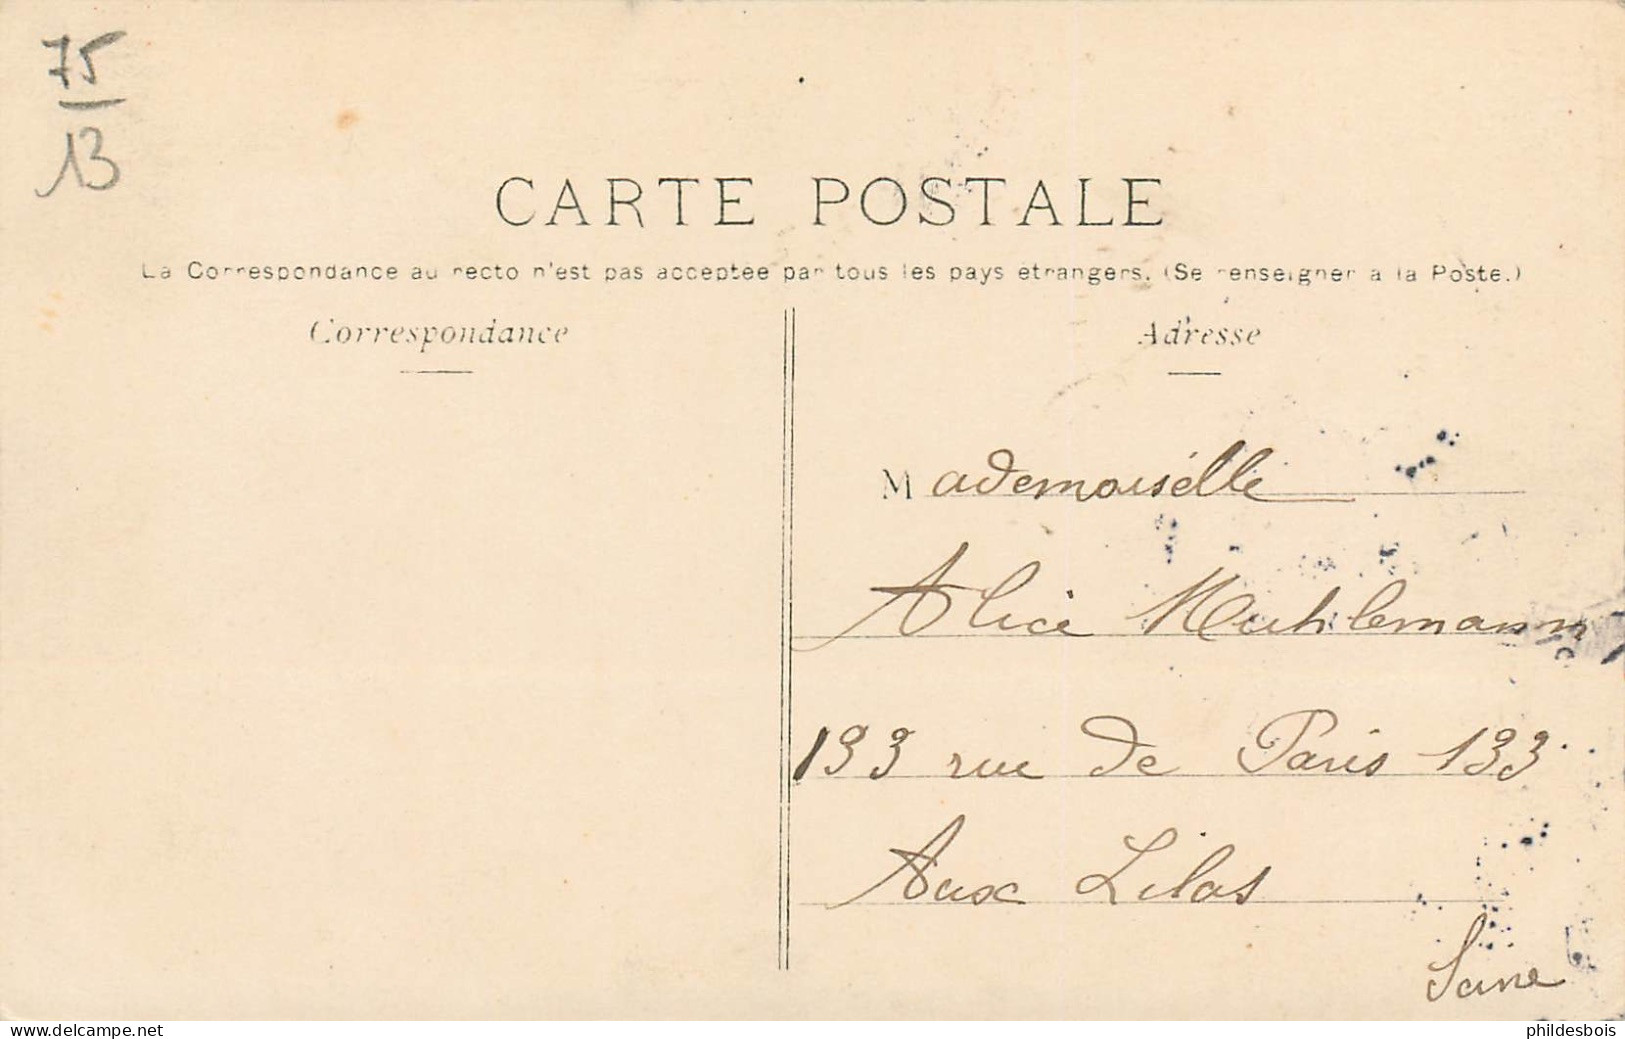 75
13
CARTE POSTALE
La Correspondance au recto n'est pas acceptée par tous les pays étrangers. (Se renseigner à la Poste.)
Correspondance
Adresse
Mademoiselle
Alice Muhlemann
133 rue de Paris 133
Aux Lilas
Seine
www.delcampe.net
phildesbois